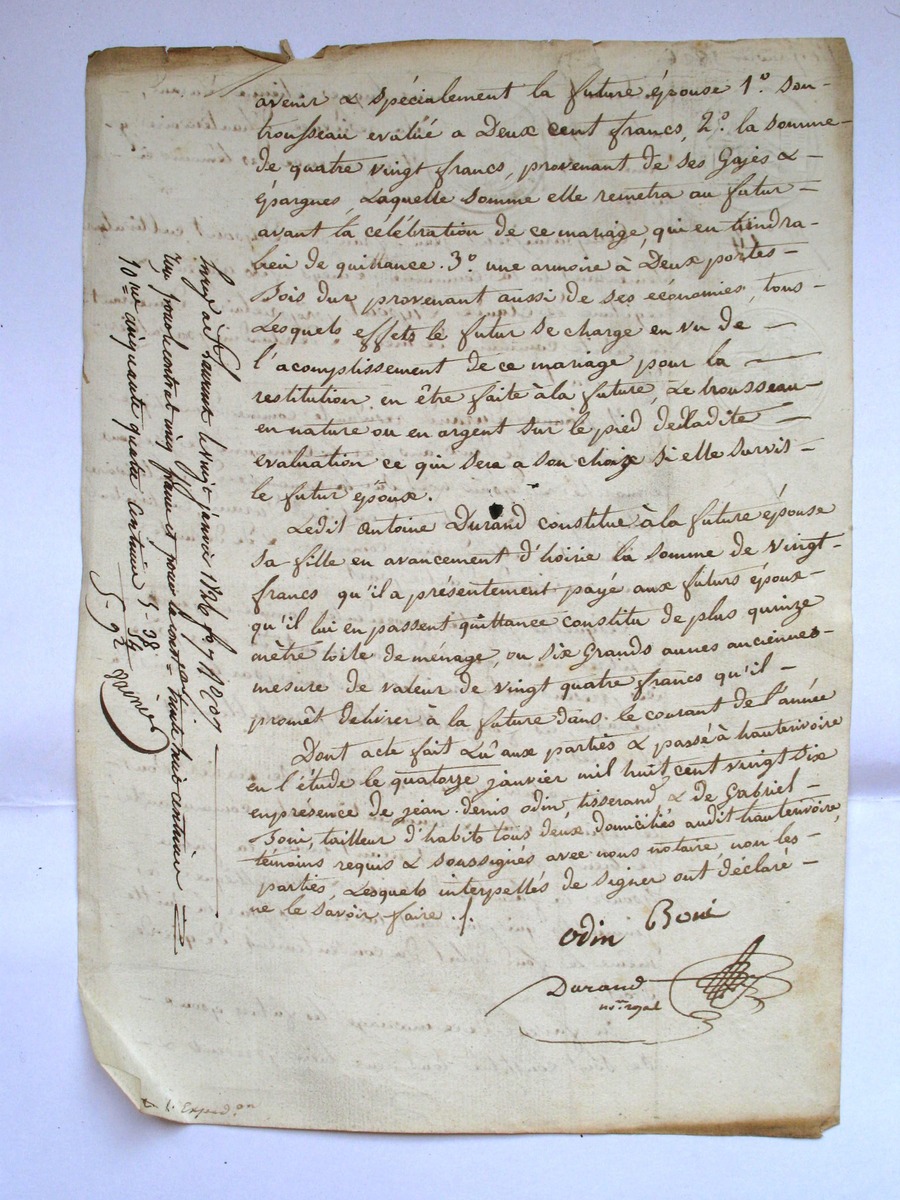 avenir & spécialement la future épouse 1º. son-
trousseau evalué a Deux cent francs, 2º. la somme-
de quatre vingt francs, provenant de ses Gajes & -
épargnes, Laquelle somme elle remetra au futur -
avant la célébration de ce mariage, qui en tiendra-
lieu de quittance. 3º une armoire à Deux portes-
Bois dur provenant aussi de ses economies, tous-
Lesquels effets le futur se charge en vu de -
l'acomplissement de ce mariage pour la -
restitution en être faite à la future, Le trousseau-
en nature ou en argent sur le pied de Ladite -
evaluation ce qui sera a son choix si elle survis-
le futur époux.
Ledit Antoine Durand constitue à la future épouse
sa fille en avancement d'hoirie la somme de vingt-
francs qu'il a présentement payé aux futurs époux-
qu'il lui en passent quittance constitu de plus quinze
mètre toile de ménage, ou six Grands aunes anciennes-
mesure de valeur de vingt quatre francs qu'il -
promêt delivrer à la future dans le courant de l'année
Dont acte fait Lû aux parties & passé à hauterivoire
en l'étude le quatorze janvier mil huit cent vingt six
en présence de jean denis odin, tisserand, & de Gabriel -
Boni, tailleur d'habits tous deux domiciliés audit hauterivoire,
témoins requis & soussignés avec nous notaire non les -
parties, Lesquels interpellés de signer ont déclaré -
ne le savoir faire ./.
odin Boni
Durand
nore. royal
St Laurent le vingt janvier 1826 fo 71
reçu pour contrat cinq francs et pour trente huit centimes
10me cinquante quatre centimes 5-38
54
5-92
&. Exped.on